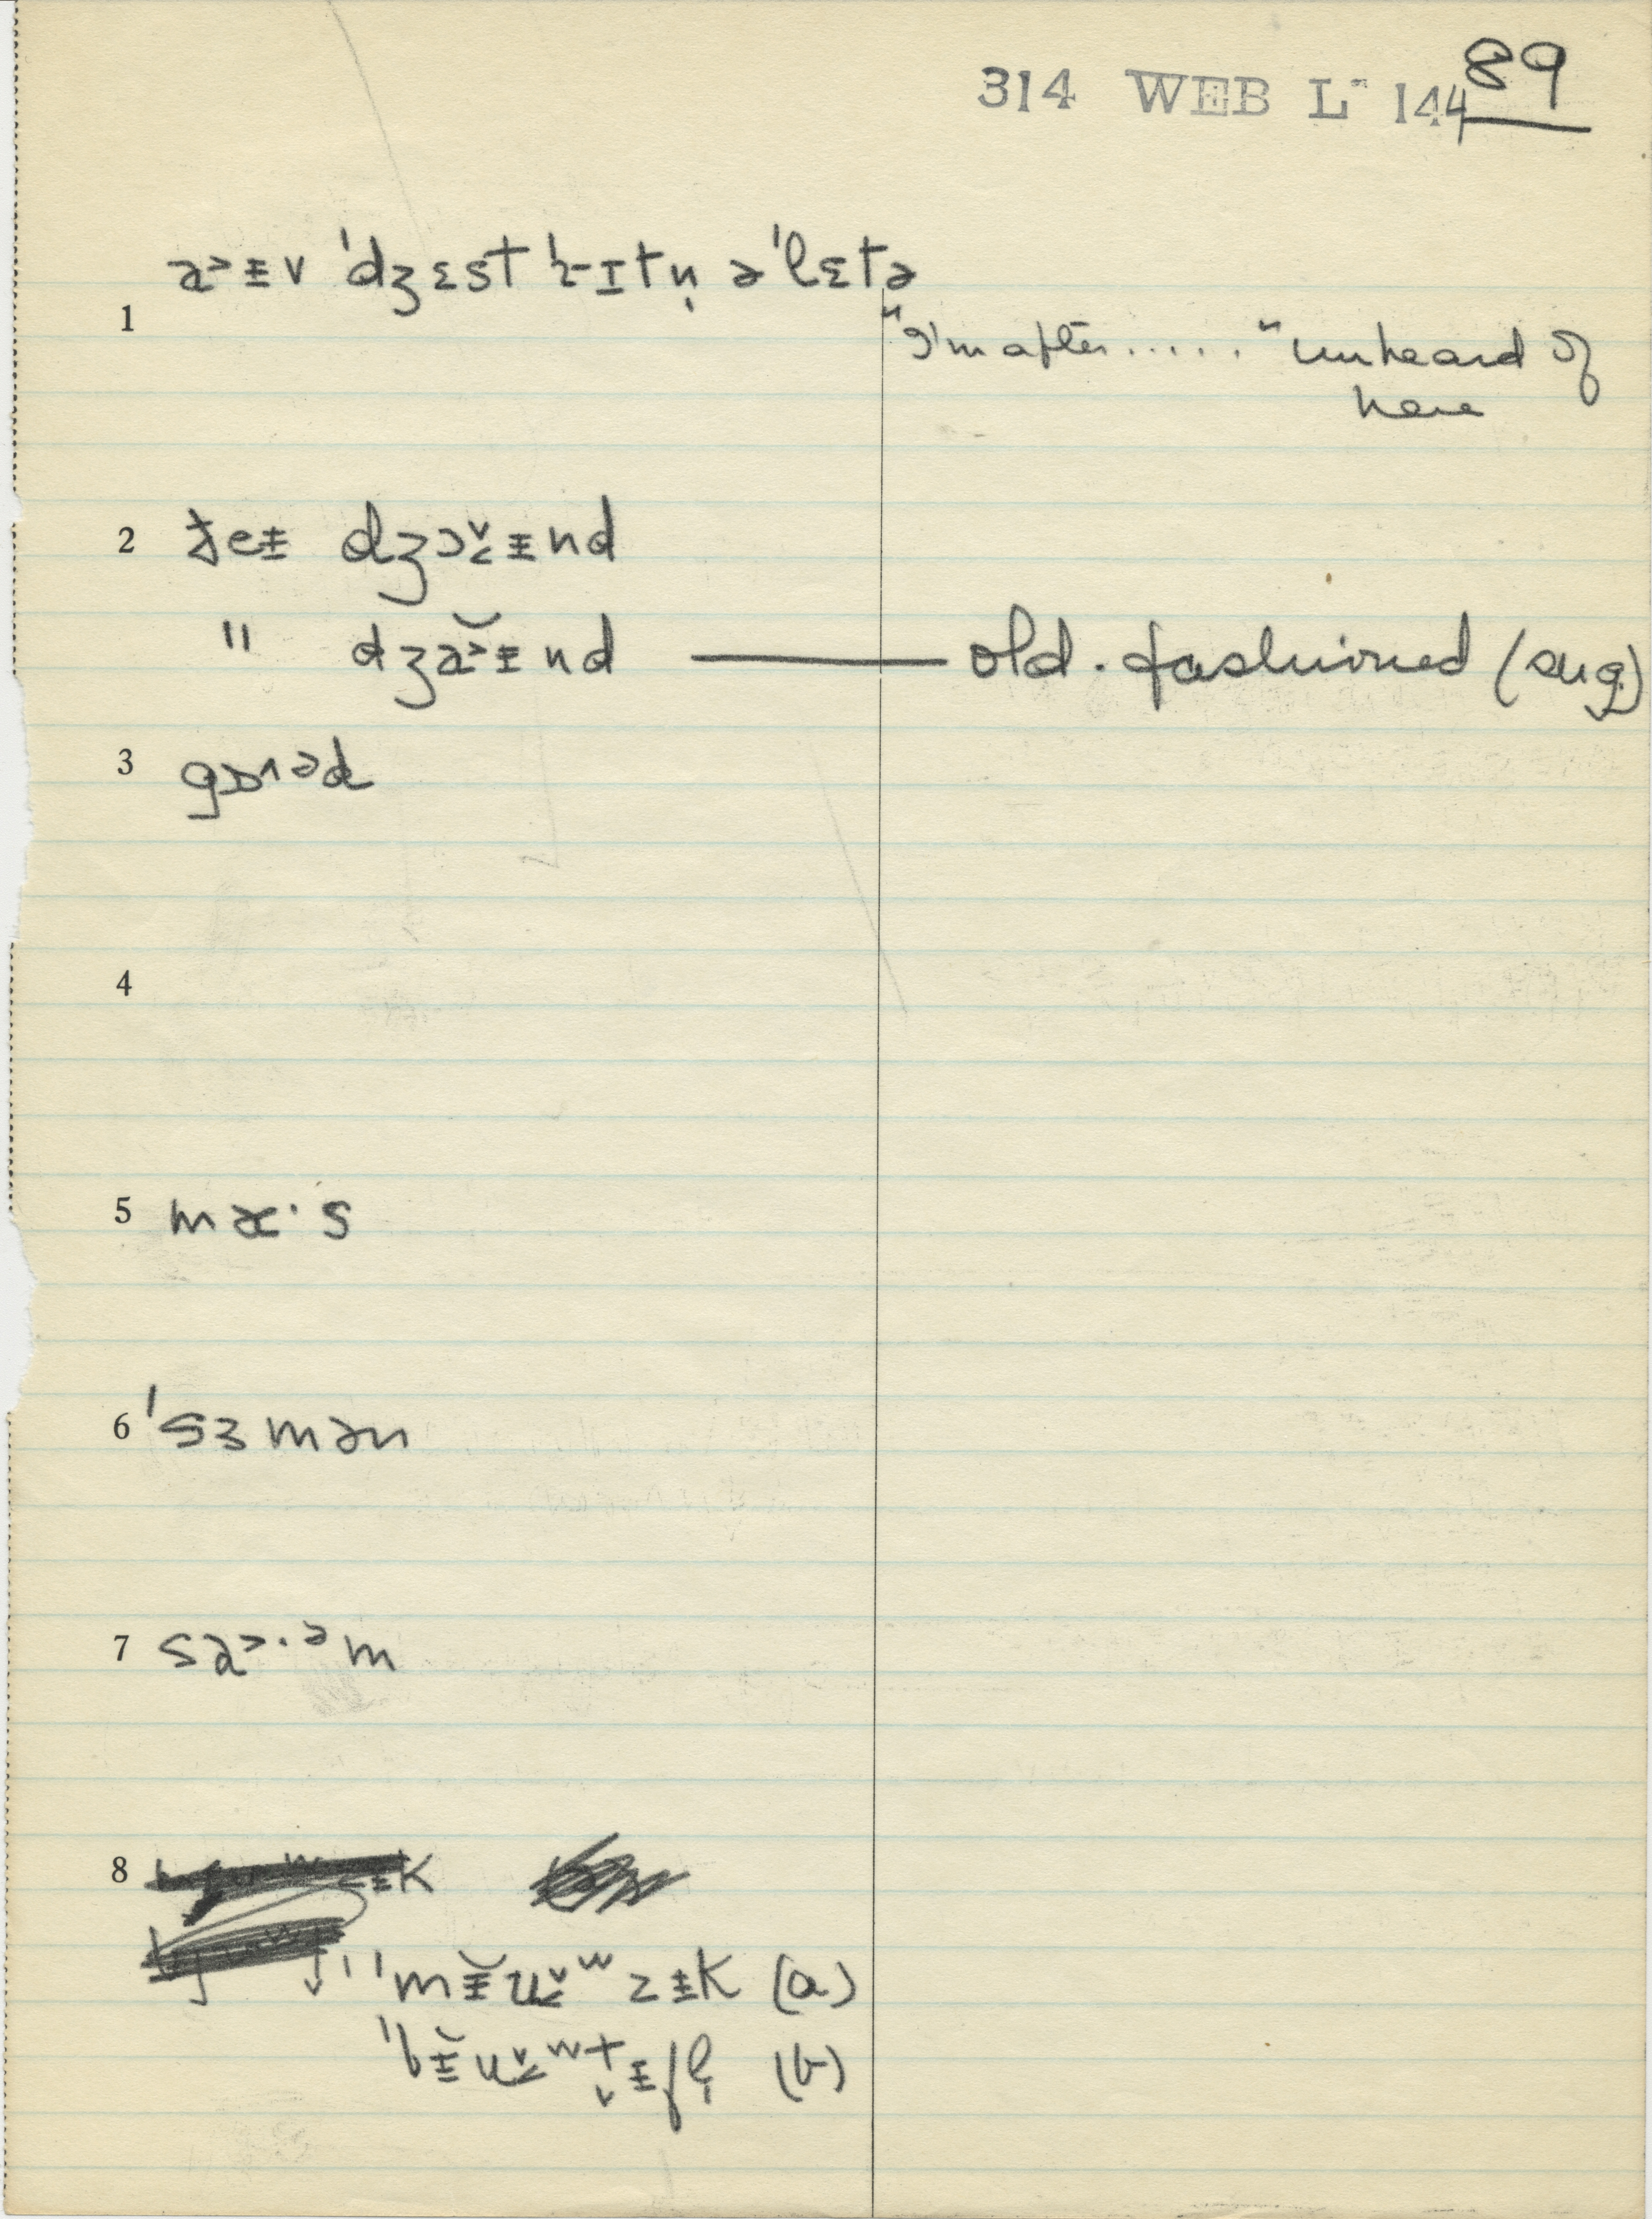 314 WEB L- 144 89
1 a˃ᵻv 'dʒɛst ɹɪtn̩ ə'lɛtə
"I'm after....." unheard of
here
2 ɟeᵻ dʒɔ̬ᵻnd
" dʒa˃̆ᵻnd —— old-fashioned (sug.)
3 gɒ˄əd
4
5 mæ·s
6 'sɜmən
7 sa˃·ᵊm
8 ᵻk
'mᵻ̆u̬ʷzᵻk (a)
'bᵻ̆u̬ʷt̬ᵻfl̩ (b)